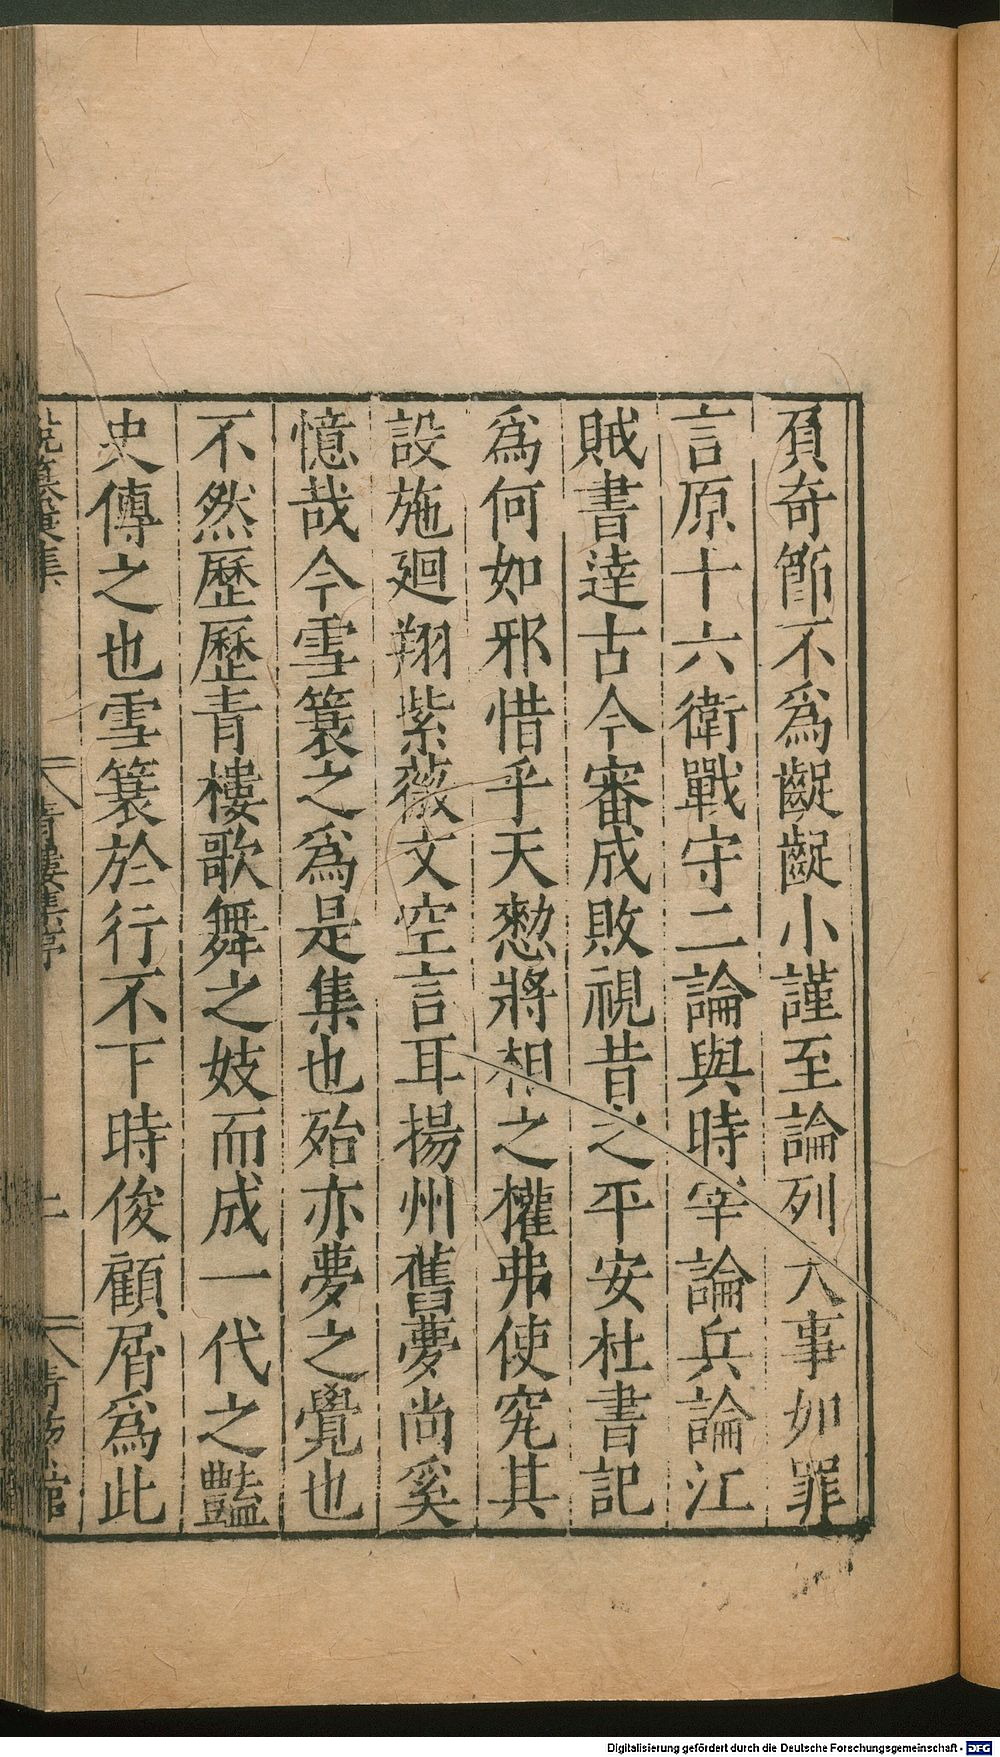 負奇節不爲齪齪小謹至論列大事如罪
言原十六衛戰守二論與時宰論兵論江
賊書達古今審成敗視昔之平安杜書記
爲何如邪惜乎天憖將相之權弗使究其
設施廻翔紫薇文空言耳揚州舊夢尚奚
憶哉今雪簑之爲是集也殆亦夢之覺也
不然歷歷青樓歌舞之妓而成一代之豔
史傳之也雪簑於行不下時俊顧屑爲此
青樓集序
Digitalisierung gefördert durch die Deutsche Forschungsgemeinschaft - DFG